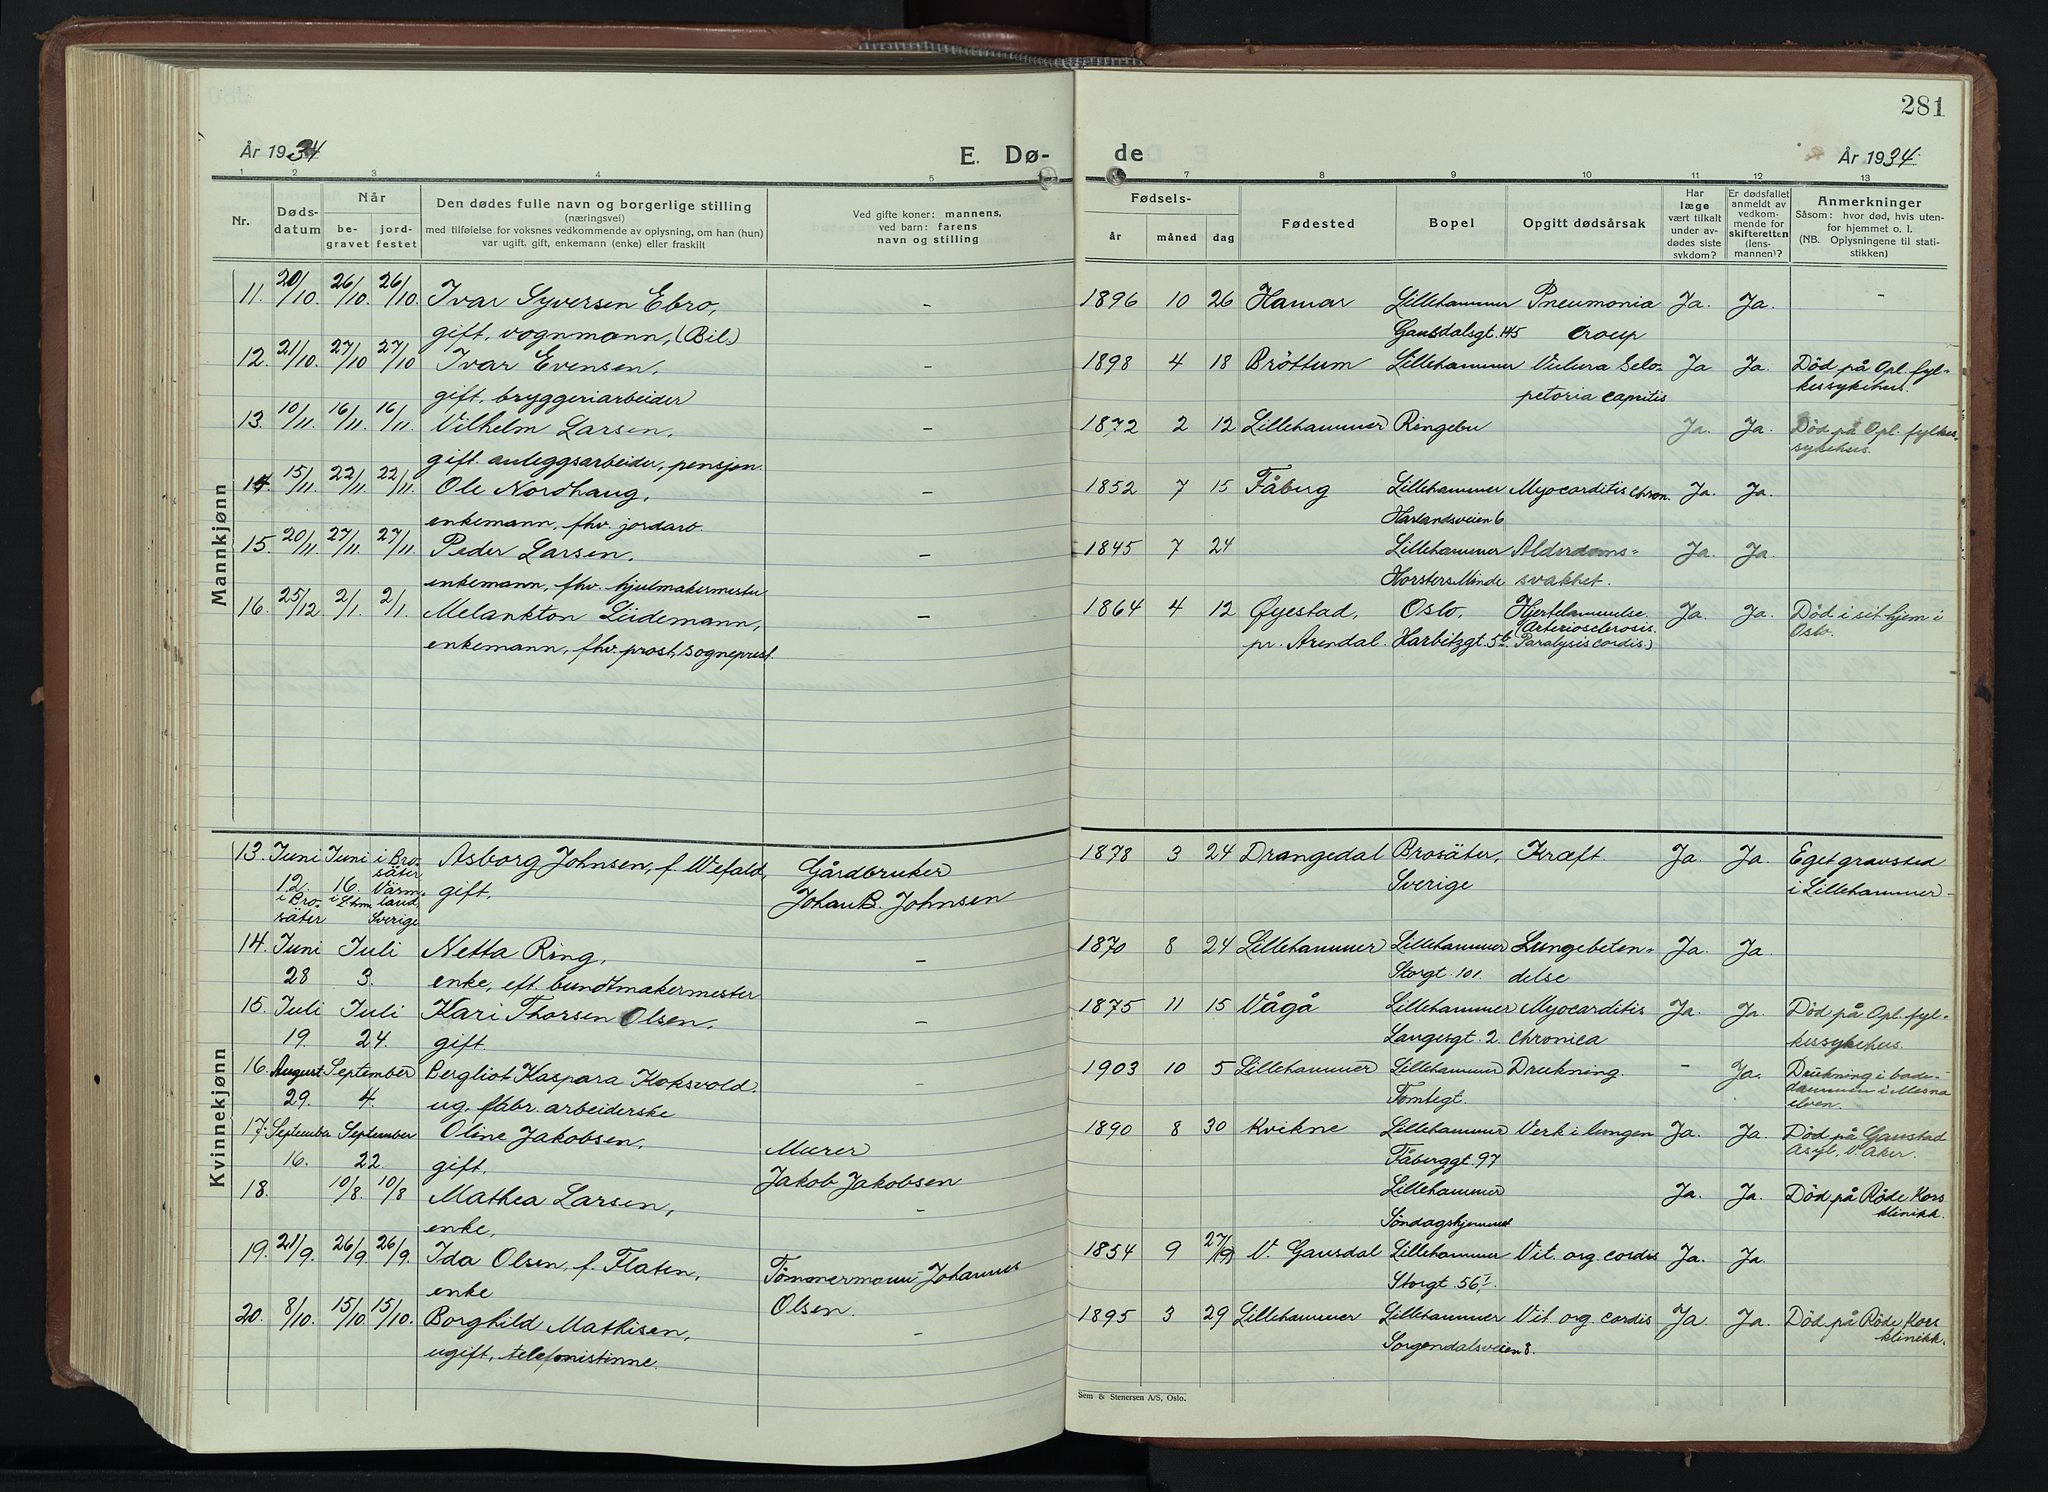 281
År 1934
E. Dø-
de
År 1934
1 2 3 4 5
7 8 9 10 11 12 13
Nr.
Døds-
datum
Når
be-
gravet
jord-
festet
Den dødes fulle navn og borgerlige stilling
(næringsvei)
med tilføielse for voksnes vedkommende av oplysning, om han (hun)
var ugift, gift, enkemann (enke) eller fraskilt
Ved gifte koner: mannens,
ved barn: farens
navn og stilling
Fødsels-
år måned dag
Fødested
Bopel
Opgitt dødsårsak
Har
læge
vært tilkalt
under av-
dødes siste
sykdom?
Er dødsfallet
anmeldt av
vedkom-
mende for
skifteretten
(lens-
mannen)?
Anmerkninger
Såsom: hvor død, hvis uten-
for hjemmet o. l.
(NB. Oplysningene til stati-
stikken)
Mannkjønn
11. 20/10. 26/10 26/10. Ivar Syversen Ebro, - 1896 10 26 Hamar Lillehammer Pneumonia Ja. Ja. -
gift, vognmann, (Bil.) Gausdalsgt. 145 croup
12. 21/10. 27/10 27/10 Ivar Evensen, - 1898 4 18 Brøttum Lillehammer Vulura Selo- Ja Ja. Død på Opl. fyl-
gift, bryggeriarbeider petoria capitis kessykehus.
13. 10/11. 16/11. 16/11. Vilhelm Larsen, - 1872 2 12 Lillehammer Ringebu Ja. Ja. Død på Opl. fylkes-
gift. anleggsarbeider, pensjon. sykehus.
14. 15/11. 22/11. 22/11. Ole Nordhaug, - 1852 7 15 Fåberg Lillehammer Myocarditis chron. Ja. Ja.
enkemann, fhv. jordarb. Harlandsveien 6
15. 20/11 27/11. 27/11 Peder Larsen, - 1845 7 24 Lillehammer Alderdoms- Ja. Ja.
enkemann, fhv. hjulmakermester Horsters Minde svakhet.
16. 25/12. 2/1. 2/1. Melankton Lüdemann, - 1864 4 12 Øyestad, Oslo, Hjertelammelse Ja. Ja. Død i sit hjem i
enkemann, fhv. prost, sogneprest. pr. Arendal. Harbitzgt. 5b. (Arteriosclerosis. Paralysis cordis.) Oslo.
Kvinnekjønn
13. Juni Juni i Bro- Asborg Johnsen, f. Wefald, Gårdbruker 1878 3 24 Drangedal Brosäter, Kræft Ja. Ja. Eget gravsted
säter
12. 16. Värm- gift, Johan B. Johnsen Sverige i Lillehammer
i Bro- i Lhm. land,
säter Sverige
14. Juni Juli Netta Ring, - 1870 8 24 Lillehammer Lillehammer Lungebeten- Ja. Ja.
28 3. enke, eft. bundtmakermester Storgt. 101. delse
15. Juli Juli Kari Thorsen Olsen, - 1875 11 15 Vågå Lillehammer Myocarditis Ja. Ja. Død på Opl. fyl-
19. 24. gift. Langesgt. 2. chronica kessykehus.
16. August September Bergliot Kaspara Koksvold - 1903 10 5 Lillehammer Lillehammer Drukning. - Ja. Drukning i bade-
29. 4. ug. fabr. arbeiderske Tomtegt. dammen i Mesna
elven.
17. September September Oline Jakobsen, Murer 1890 8 30 Kvikne Lillehammer Verk i lungen Ja. Ja. Død på Gaustad
16. 22. gift. Jakob Jakobsen Fåberggt. 97 Asyl, V. Aker.
18. 10/8. 10/8 Mathea Larsen, - Lillehammer Ja. Ja. Død på Røde Kors
enke, Søndagshjemmet klinikk.
19. 21/9. 26/9. 26/9. Ida Olsen, f. Flaten, Tømmermann Johannes 1854 9 27(/9) V. Gausdal Lillehammer Vit. org. cordis Ja. Ja.
enke Olsen. Storgt. 56I.
20. 8/10. 15/10. 15/10. Borghild Mathisen, - 1895 3 29 Lillehammer Lillehammer Vit. org cordis Ja Ja. Død på Røde Kors
ugift, telefonistinne. Sorgendalsveien 8. klinikk.
Sem & Stenersen A/S, Oslo.